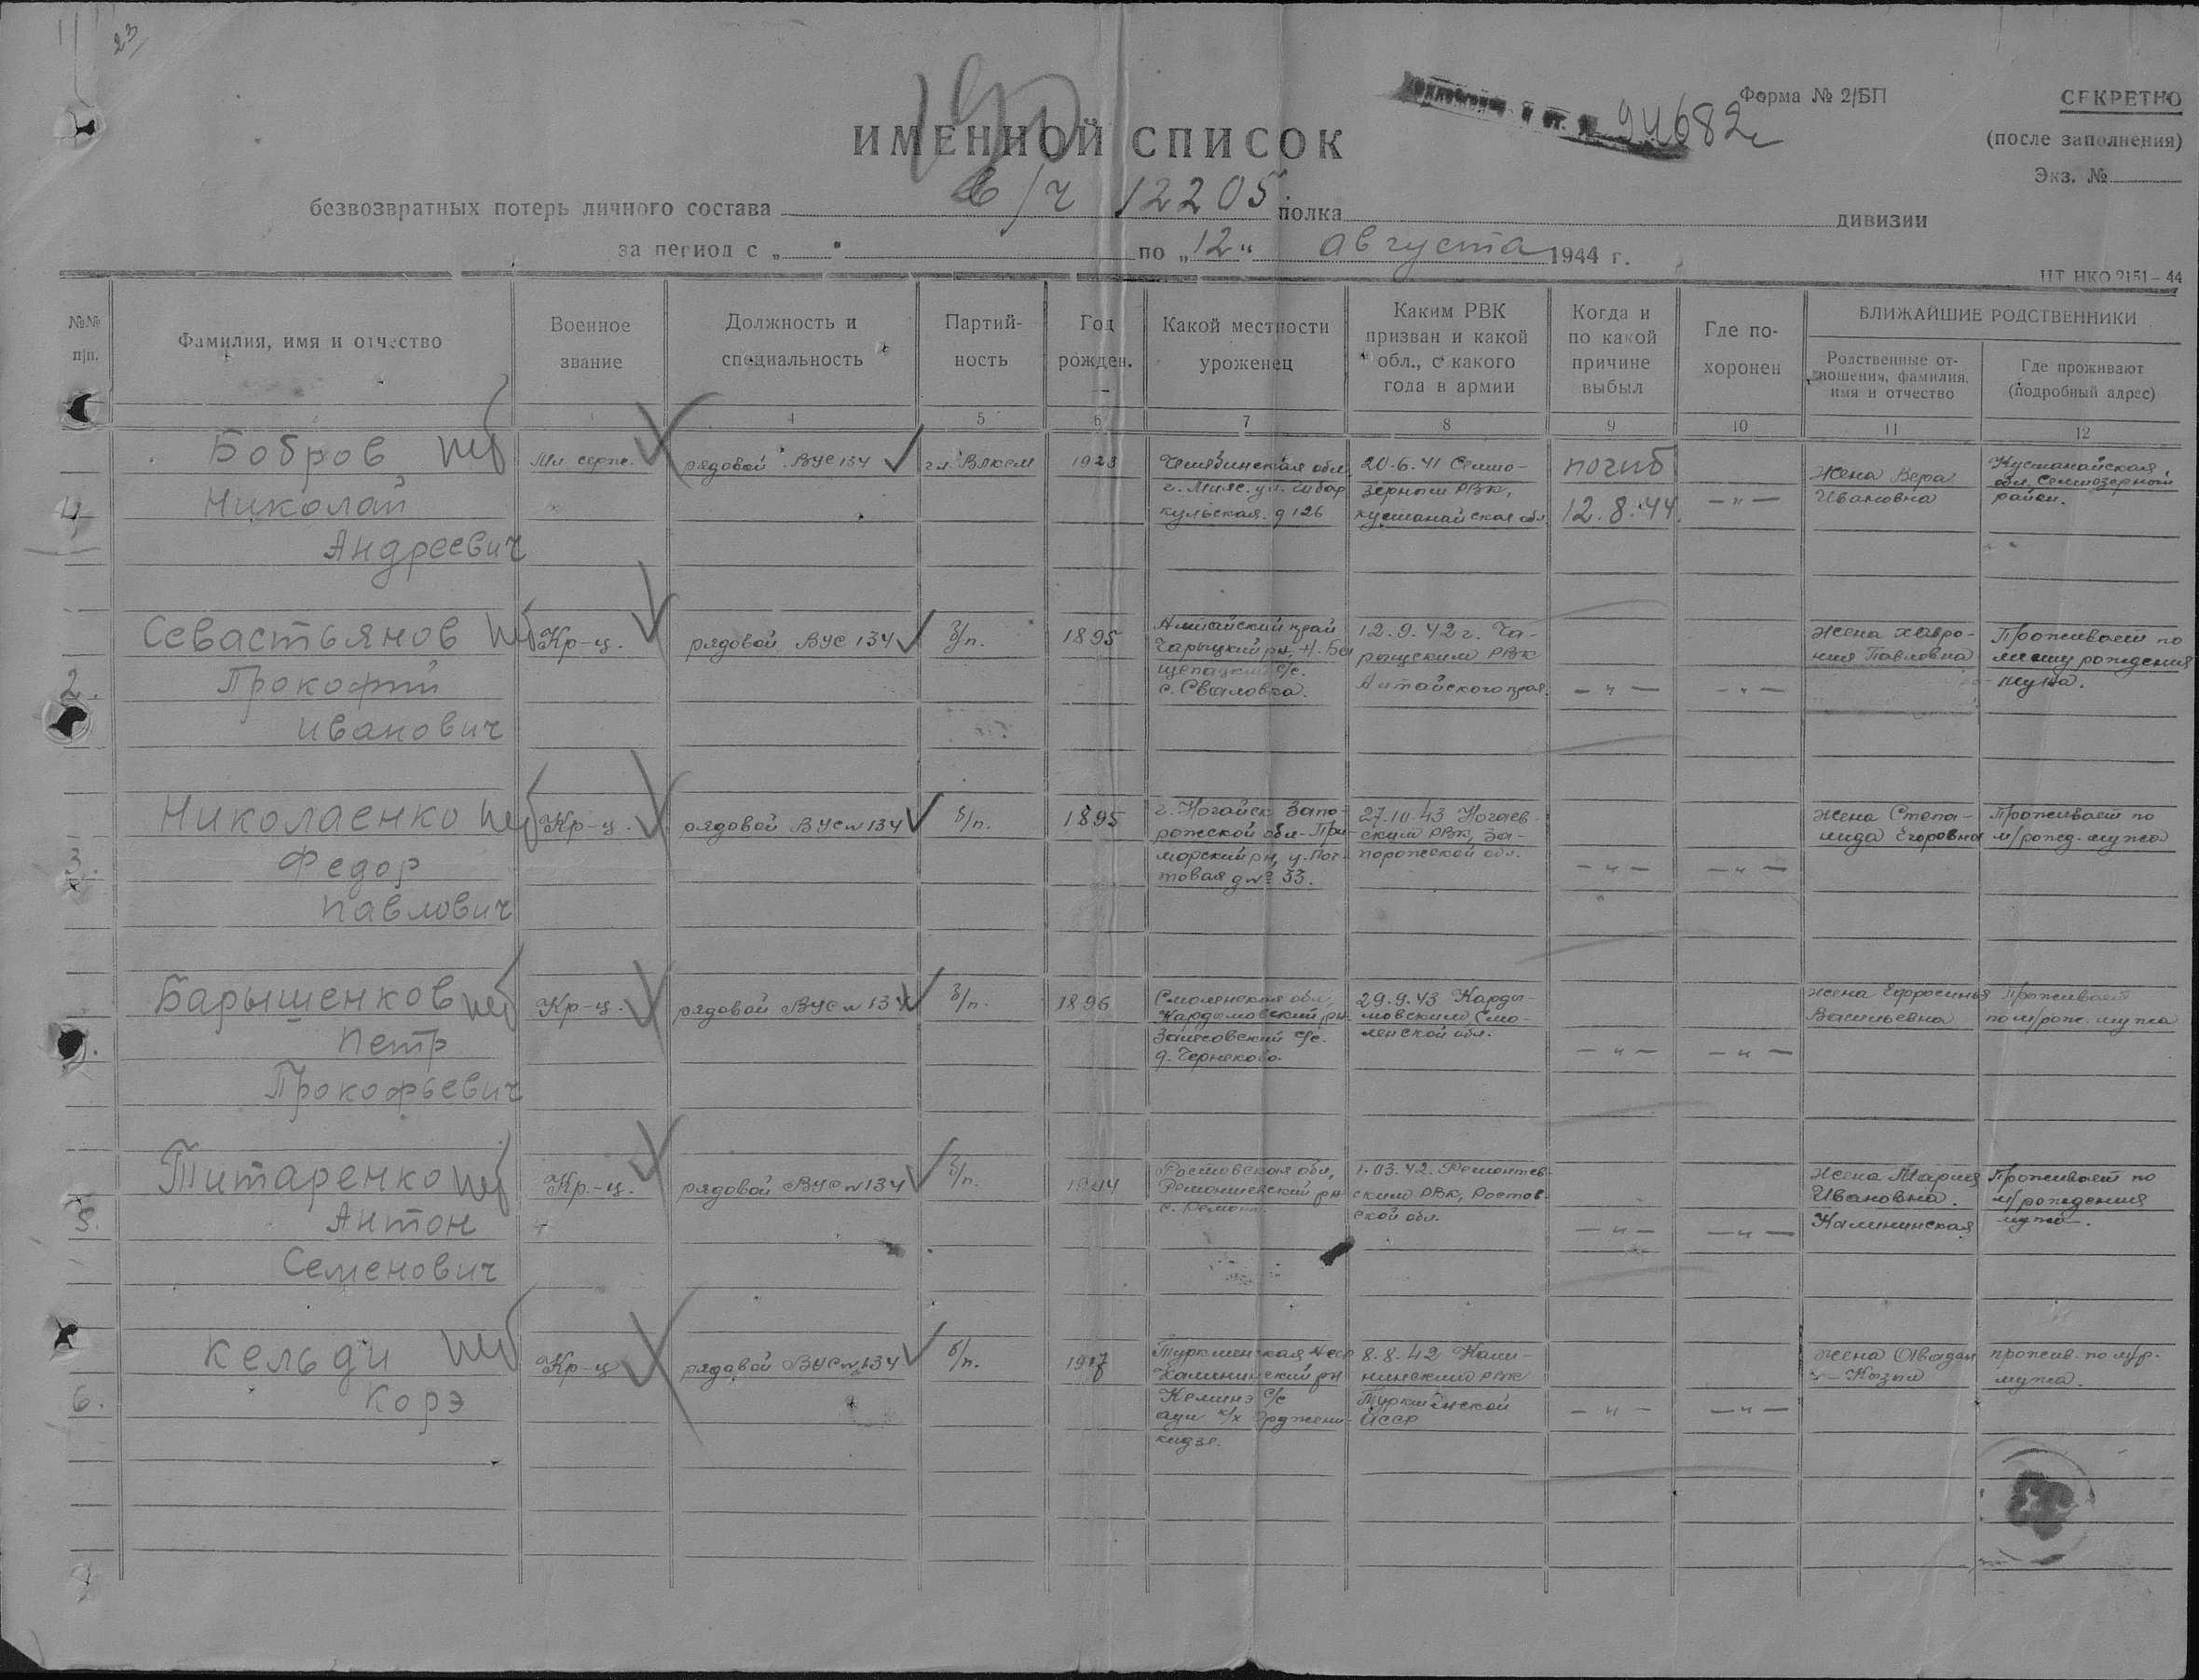 23
190
94682
Форма № 2/БП
СЕКРЕТНО
(после заполнения)
Экз. №
ИМЕННОЙ СПИСОК
безвозвратных потерь личного состава в/ч 12205 полка дивизии
за период с „ “ по „12“ августа 1944 г.
ЦТ НКО 2151–44
№№ п/п.
Фамилия, имя и отчество
Военное звание
Должность и специальность
Партий-ность
Год рожден.
Какой местности уроженец
Каким РВК призван и какой обл., с какого года в армии
Когда и по какой причине выбыл
Где по-хоронен
БЛИЖАЙШИЕ РОДСТВЕННИКИ
Родственные от-ношения, фамилия, имя и отчество
Где проживают (подробный адрес)
4 5 6 7 8 9 10 11 12
Бобров
Николай
Андреевич
Мл. серж.
рядовой ВУС 134
чл. ВЛКСМ
1923
Челябинская обл.
г. Миас. ул. Чебар
кульская. д 126
20.6.41 Семио-
зерным РВК,
кустанайская обл.
погиб
12.8.44
— " —
Жена Вера
Ивановна
Кустанайская
обл. Семиозерный
район.
2.
Севастьянов
Прокофий
Иванович
Кр-ц.
рядовой ВУС 134
б/п.
1895
Алтайский край
с/с.
12.9.42 г. Ча-
рышским РВК
Алтайского края.
— " —
— " —
Жена Хавро-
ния Павловна
Проживает по
месту рождения
мужа.
3.
Николаенко
Федор
Павлович
Кр-ц.
рядовой ВУС№134
б/п.
1895
г. Ногайск Запо-
рожской обл. При-
морский рн, у. Поч-
товая д№ 33.
27.10.43 Ногаев-
ским РВК, За-
порожской обл.
— " —
— " —
Жена Степа-
нида Егоровна
Проживает по
м/рожд. мужа
Барышенков
Петр
Прокофьевич
Кр-ц.
рядовой ВУС№134
б/п.
1896
Смоленская обл.,
Кардымовский рн.
с/с.
29.9.43 Карды-
мовским Смо-
ленской обл.
— " —
— " —
Жена Ефросинья
Васильевна
Проживает
по м/рож. мужа
5.
Титаренко
Антон
Семенович
Кр.-ц.
рядовой ВУС№134
б/п.
Ростовская обл,
Ремонтневский рн
с. Ремонт.
1.03.42. Ремонтнев-
ским РВК, Ростов-
ской обл.
— " —
— " —
Жена Мария
Ивановна.
Калининская
Проживает по
м/рождения
мужа.
6.
Кельди
Корэ
Кр-ц
рядовой ВУС№134
б/п.
Туркменская
Калининский рн
с/с
аул к/х Орджени-
кидзе.
8.8.42 Кали-
нинским РВК
Туркменской
СССР
— " —
— " —
Жена Овадан
Кызы
прожив. по м/р.
мужа.